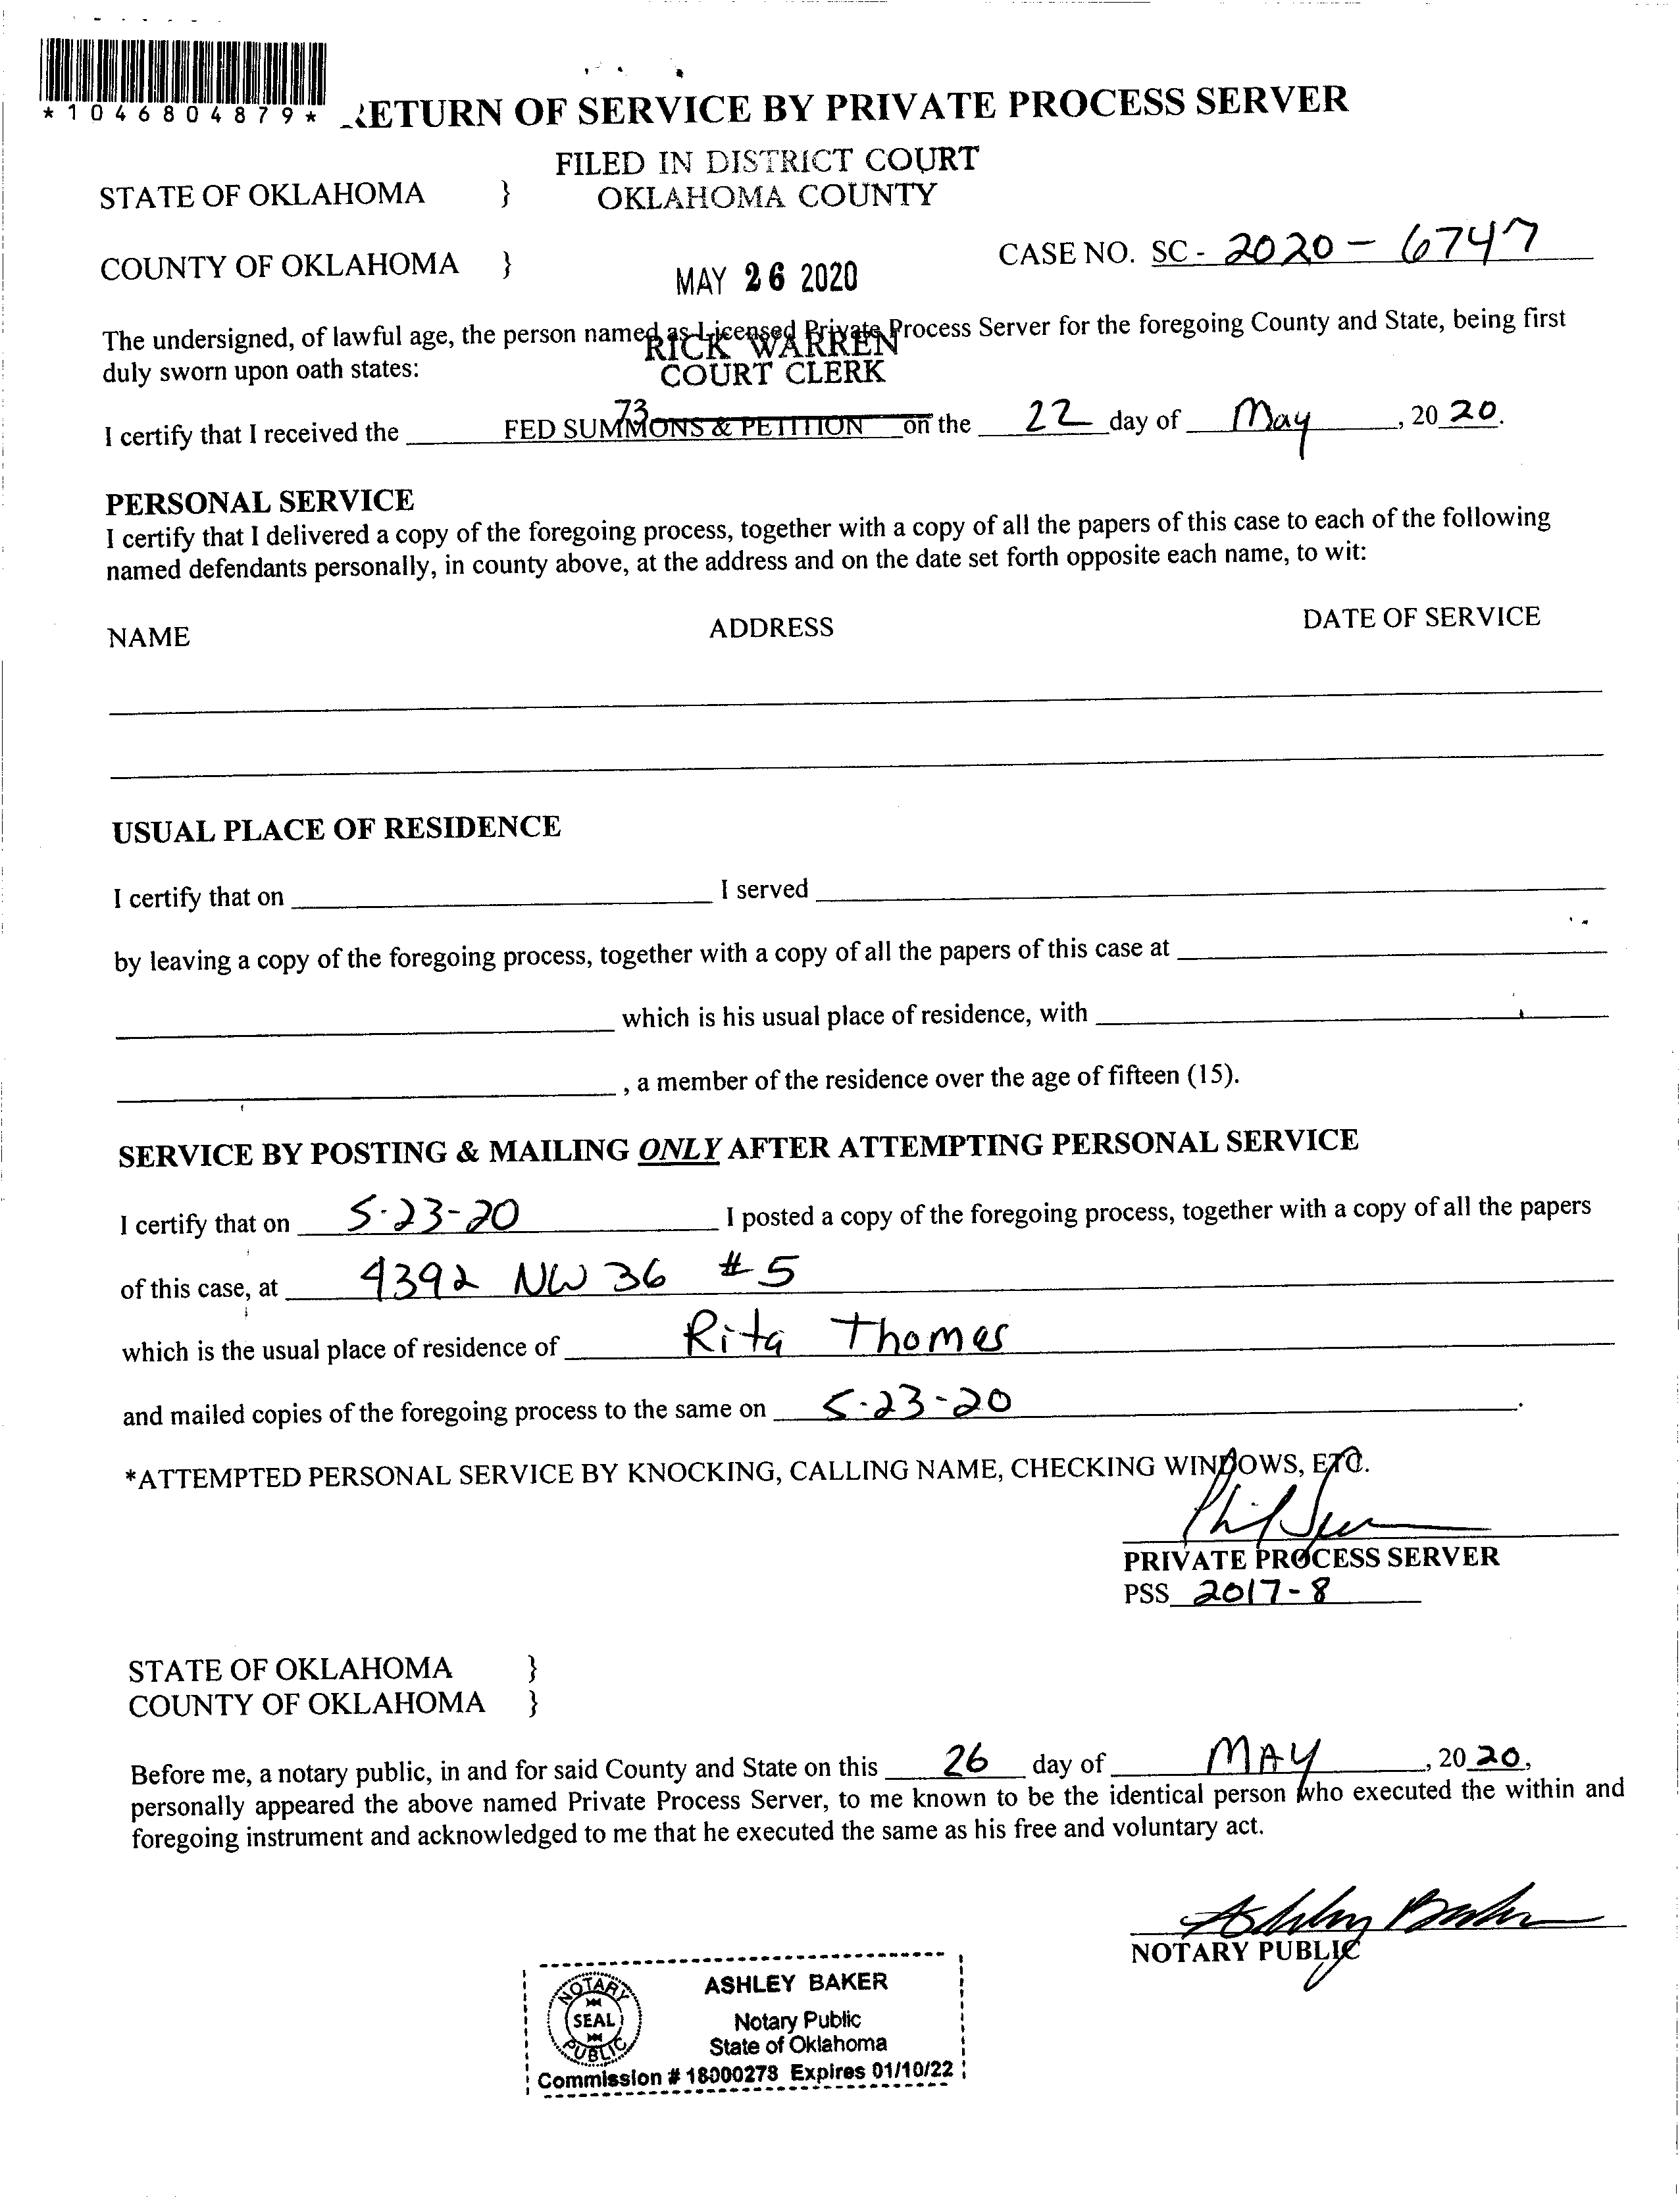 *1046804879*
RETURN OF SERVICE BY PRIVATE PROCESS SERVER
FILED IN DISTRICT COURT
OKLAHOMA COUNTY
STATE OF OKLAHOMA }
COUNTY OF OKLAHOMA }
MAY 26 2020
CASE NO. SC - 2020 - 6747
The undersigned, of lawful age, the person named as Licensed Private Process Server for the foregoing County and State, being first
RICK WARREN
duly sworn upon oath states:
COURT CLERK
73
I certify that I received the FED SUMMONS & PETITION on the 22 day of May, 20 20.
PERSONAL SERVICE
I certify that I delivered a copy of the foregoing process, together with a copy of all the papers of this case to each of the following
named defendants personally, in county above, at the address and on the date set forth opposite each name, to wit:
NAME ADDRESS DATE OF SERVICE
USUAL PLACE OF RESIDENCE
I certify that on ____ I served ____
by leaving a copy of the foregoing process, together with a copy of all the papers of this case at ____
____ which is his usual place of residence, with ____
____, a member of the residence over the age of fifteen (15).
SERVICE BY POSTING & MAILING ONLY AFTER ATTEMPTING PERSONAL SERVICE
I certify that on 5-23-20 I posted a copy of the foregoing process, together with a copy of all the papers
of this case, at 4392 NW 36 #5
which is the usual place of residence of Rita Thomas
and mailed copies of the foregoing process to the same on 5-23-20.
*ATTEMPTED PERSONAL SERVICE BY KNOCKING, CALLING NAME, CHECKING WINDOWS, ETC.
PRIVATE PROCESS SERVER
PSS 2017-8
STATE OF OKLAHOMA }
COUNTY OF OKLAHOMA }
Before me, a notary public, in and for said County and State on this 26 day of MAY, 20 20,
personally appeared the above named Private Process Server, to me known to be the identical person who executed the within and
foregoing instrument and acknowledged to me that he executed the same as his free and voluntary act.
Ashley Baker
NOTARY PUBLIC
NOTARY
SEAL
PUBLIC
ASHLEY BAKER
Notary Public
State of Oklahoma
Commission # 18000278 Expires 01/10/22